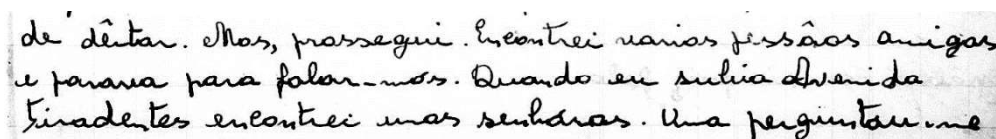 de dêitar. Mas, prossegui. Encontrei varias pessôas amigas
e parava para falar-mos. Quando eu subia Avenida
Tiradentes encontrei umas senhoras. Uma perguntou-me